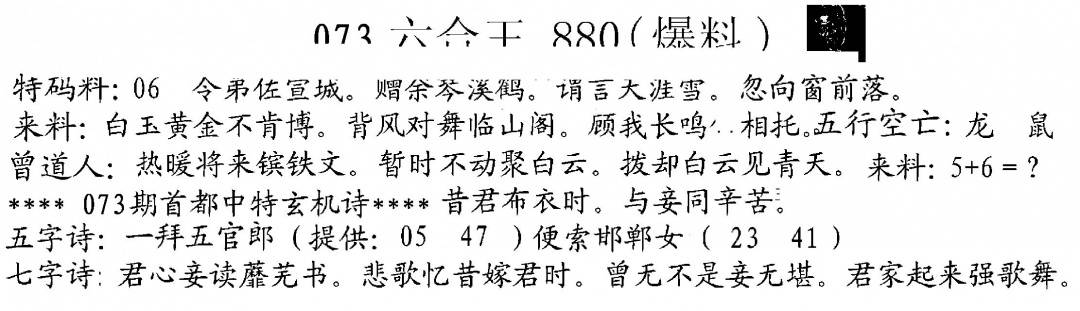 073 六合王 880(爆料)
特码料: 06 令弟佐宣城。赠余琴溪鹤。谓言天涯雪。忽向窗前落。
来料: 白玉黄金不肯博。背风对舞临山阁。顾我长鸣 相托。五行空亡: 龙 鼠
曾道人: 热暖将来镔铁文。暂时不动聚白云。拨却白云见青天。来料: 5+6 = ?
**** 073期首都中特玄机诗**** 昔君布衣时。与妾同辛苦。
五字诗: 一拜五官郎 (提供: 05 47 ) 便索邯郸女 ( 23 41 )
七字诗: 君心妾读蘼芜书。悲歌忆昔嫁君时。曾无不是妾无堪。君家起来强歌舞。